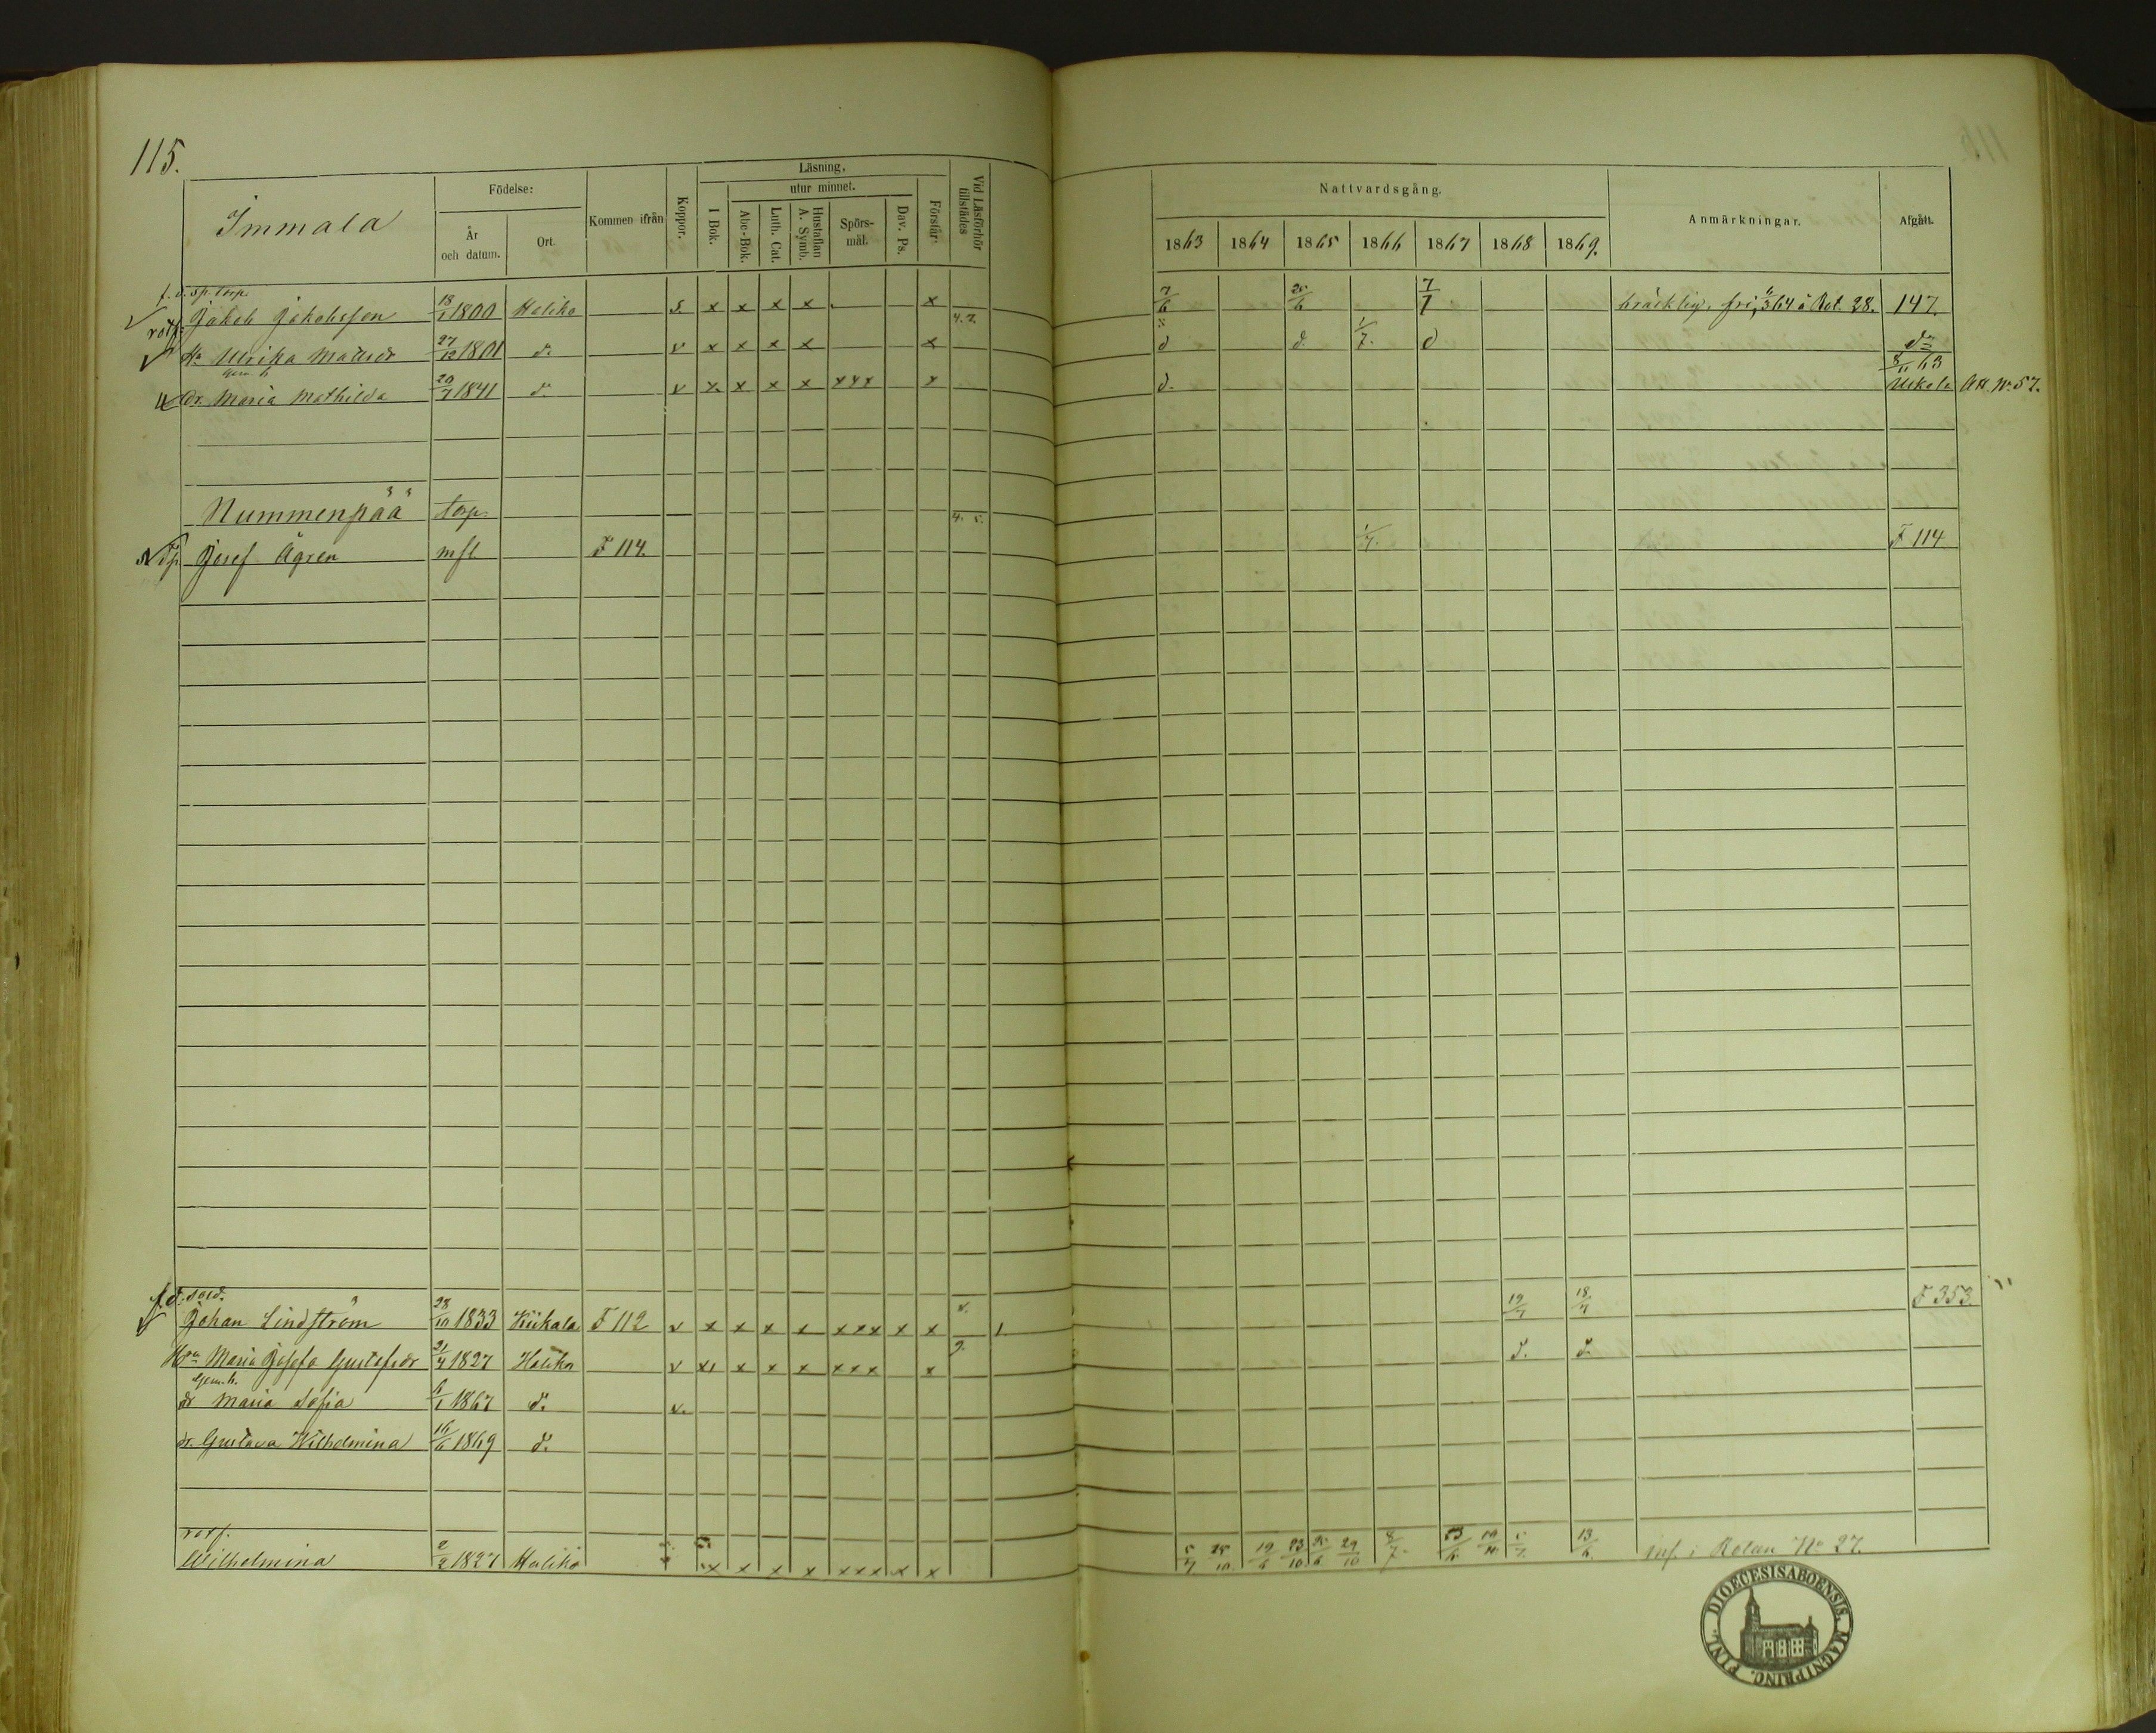 115.
Immala
Födelse:
År och datum.
Ort.
Kommen ifrån
Koppor.
Läsning,
I Bok.
utur minnet.
Abc-Bok.
Luth. Cat.
Hustaflan A. Symb.
Spörsmål.
Dav. Ps.
Förstår
Vid Läsförhör tillstädes
Nattvardsgång.
1863 1864 1865 1866 1867 1868 1869.
Anmärkningar.
Afgått.
f. d. sp. torp.
Jakob Jakobsson 18/1 1800 Haliko s. x x x x x 4. 7. 7/6 25/6 7/7 bräcklig, fri, å Rot. 28. 147.
rotf.
Ulrika Matsdr 27/12 1801 d:o v x x x x x d d. 1/7. d d:o
8/11 63
dr. Maria Mathilda 20/7 1841 d:o v x x x x xxx x d. Uskela Att. No 57.
Nummenpää torp. 4. 5.
Josef Ågren F 114. 1/7. F 114
f. d. sold.
Johan Lindström 28/10 1833 Kiikala F 112 v x x x x xxx x x 1. 19/7 18/7 F 353.
Maria Josefa Gustafsdr 21/4 1827 Haliko v x x x x xxx x 9. d. d.
dr Maria Sofia 6/1 1867 d:o v.
dr. Gustava Wilhelmina 16/6 1869 d:o
rotf.
Wilhelmina 2/2 1827 Haliko x x x x xxx x x 5/7 25/10 19/6 23/10 25/6 29/10 8/7. 13/6 inf. i Rolan No 27.
DIOECESIS ABOENSIS. MAGNI PRINC. FINL.